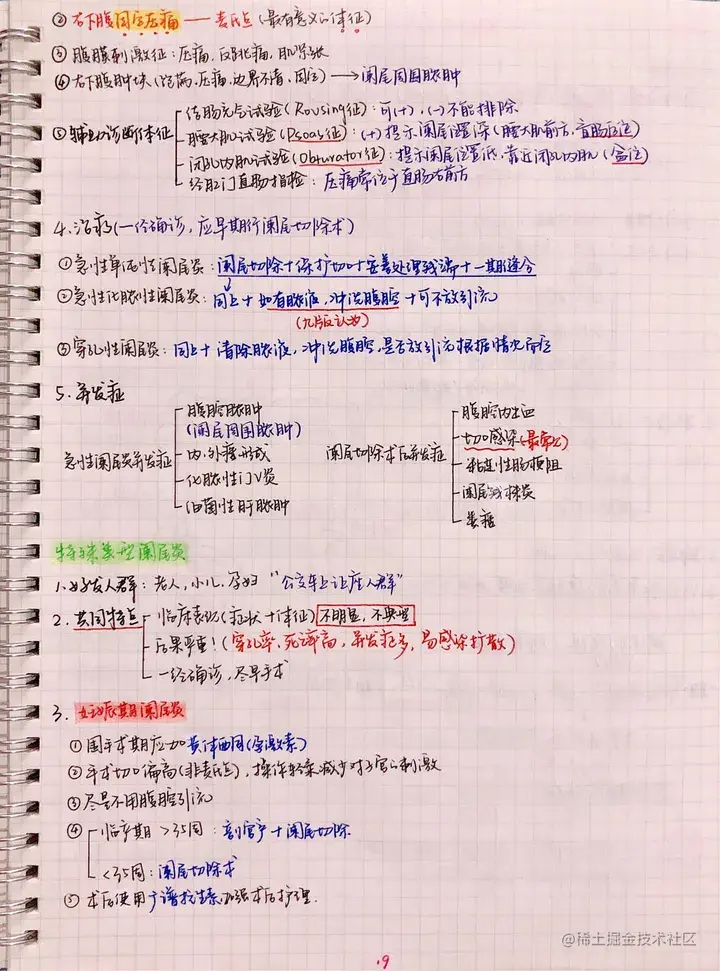 ② 右下腹固定压痛 —— 麦氏点(最有意义的体征)
③ 腹膜刺激征：压痛，反跳痛，肌紧张
④ 右下腹肿块(饱满，压痛，边界不清，固定) → 阑尾周围脓肿
⑤ 辅助诊断体征
结肠充气试验(Rovsing征)：可(+)，(-)不能排除
腰大肌试验(Psoas征)：(+)提示阑尾位置深(腰大肌前方，盲肠后位)
闭孔内肌试验(Obturator征)：提示阑尾位置低，靠近闭孔内肌(盆位)
经肛门直肠指检：压痛常位于直肠右前方
4.治疗(一经确诊，应早期行阑尾切除术)
①急性单纯性阑尾炎：阑尾切除+保护切口+妥善处理残端+一期缝合
②急性化脓性阑尾炎：同上+如有脓液，冲洗腹腔+可不放引流
(九版认为)
③穿孔性阑尾炎：同上+清除脓液，冲洗腹腔，是否放引流根据情况而定
5.并发症
急性阑尾炎并发症
腹腔脓肿
(阑尾周围脓肿)
内、外瘘形成
化脓性门V炎
细菌性肝脓肿
阑尾切除术后并发症
腹腔内出血
切口感染(最常见)
粘连性肠梗阻
阑尾残株炎
粪瘘
特殊类型阑尾炎
1.好发人群：老人，小儿，孕妇 “公交车上让座人群”
2.共同特点
临床表现(症状+体征)不明显，不典型
后果严重！(穿孔率，死亡率高，并发症多，易感染扩散)
一经确诊，尽早手术
3.妊娠期阑尾炎
①围手术期应加黄体酮(孕激素)
②手术切口偏高(非麦氏点)，操作轻柔减少对子宫的刺激
③尽量不用腹腔引流
④ 临产期 >35周：剖宫产+阑尾切除
<35周：阑尾切除术
⑤术后使用广谱抗生素，加强术后护理.
@稀土掘金技术社区
.9